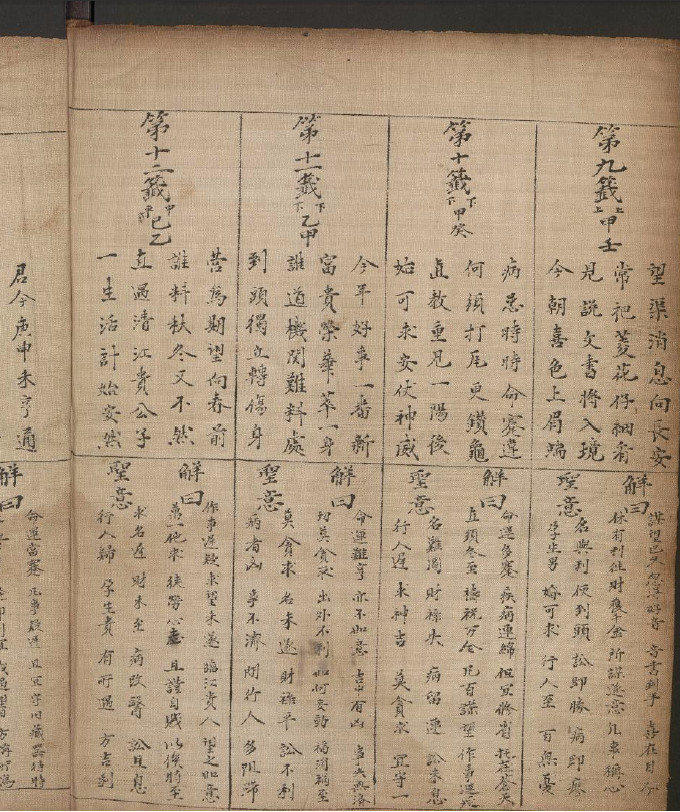 第九籤上上甲壬
望渠消息向長安
常把菱花仔細看
見說文書將入境
今朝喜色上眉端
解曰
謀望已久 忽逢好音 音書到手 喜在目今
休有利往 財獲千金 所謀遂意 凡事稱心
聖意
名與利 便到頭 訟即勝 病即瘳
孕生男 婚可求 行人至 百無憂
第十籤下下甲癸
病患時時命蹇違
何須打瓦更鑽龜
直教重見一陽後
始可求安伏神威
解曰
命運多蹇 疾病連綿 但宜修省 托在蒼天
直須冬至 禱祝方全 凡百謀望 作事
聖意
名難圖 財祿失 病留連 訟未息
行人遲 求神吉 莫貪求 宜守一
第十一籤下下乙甲
今年好事一番新
富貴榮華萃一身
誰道機関難料處
到頭獨立轉傷身
解曰
命運難亨 亦不如意 吉中有凶 事
切莫貪求 出外不利 如何妄動 禍消福至
聖意
莫貪求 名未遂 財祿平 訟不利
病者凶 事不濟 問行人 多阻滯
第十二籤中平乙乙
營為期望向春前
誰料秋冬又不然
直遇清江貴公子
一生活計始安然
解曰
作事遲疑 求望未遂 臨江貴人 望之如意
他求 徒勞心志 且謹自 以俟時至
聖意
求名遲 財未至 病改醫 訟且息
行人歸 孕生貴 有所遇 方吉利
君今庚甲未亨通
解曰
命運當蹇 凡事 且宜守旧 藏器待時